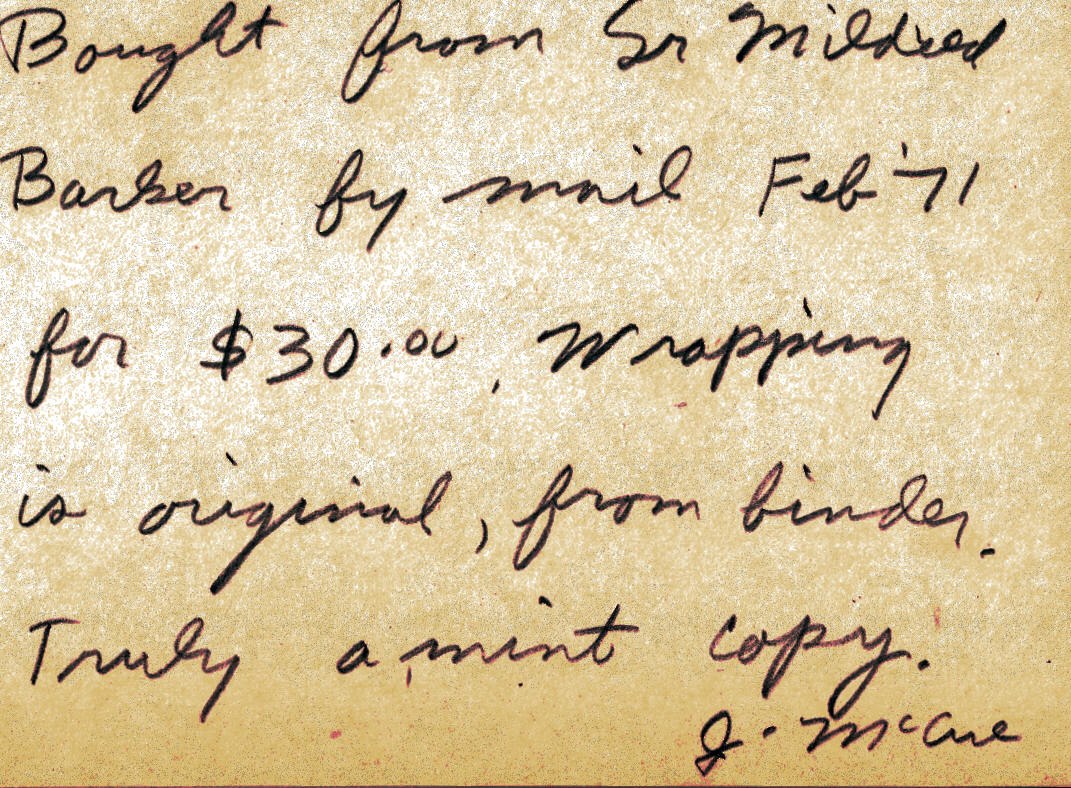 Bought from Sr Mildred
Barker by mail Feb '71
for $30.00. Wrapping
is original, from binder.
Truly a mint copy.
J. McCue